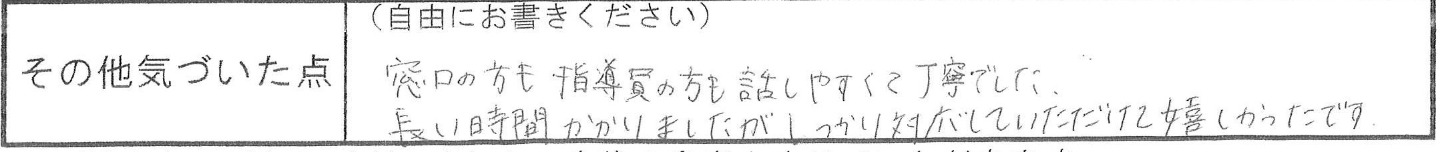 （自由にお書きください）
その他気づいた点
窓口の方も 指導員の方も 話しやすくて丁寧でした.
長い時間かかりましたがしっかり対応していただけて嬉しかったです.